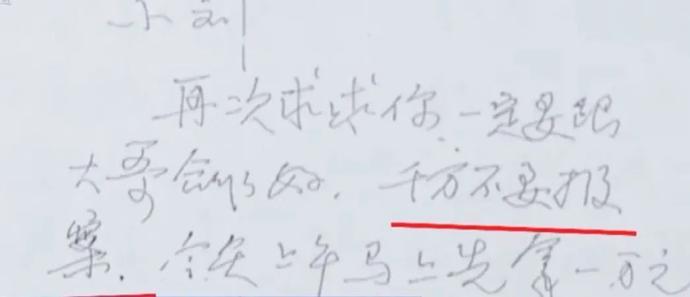 小刘
再次求求你,一定要跟
大哥合作好,千万不要报
案,今天上午马上先拿一万元